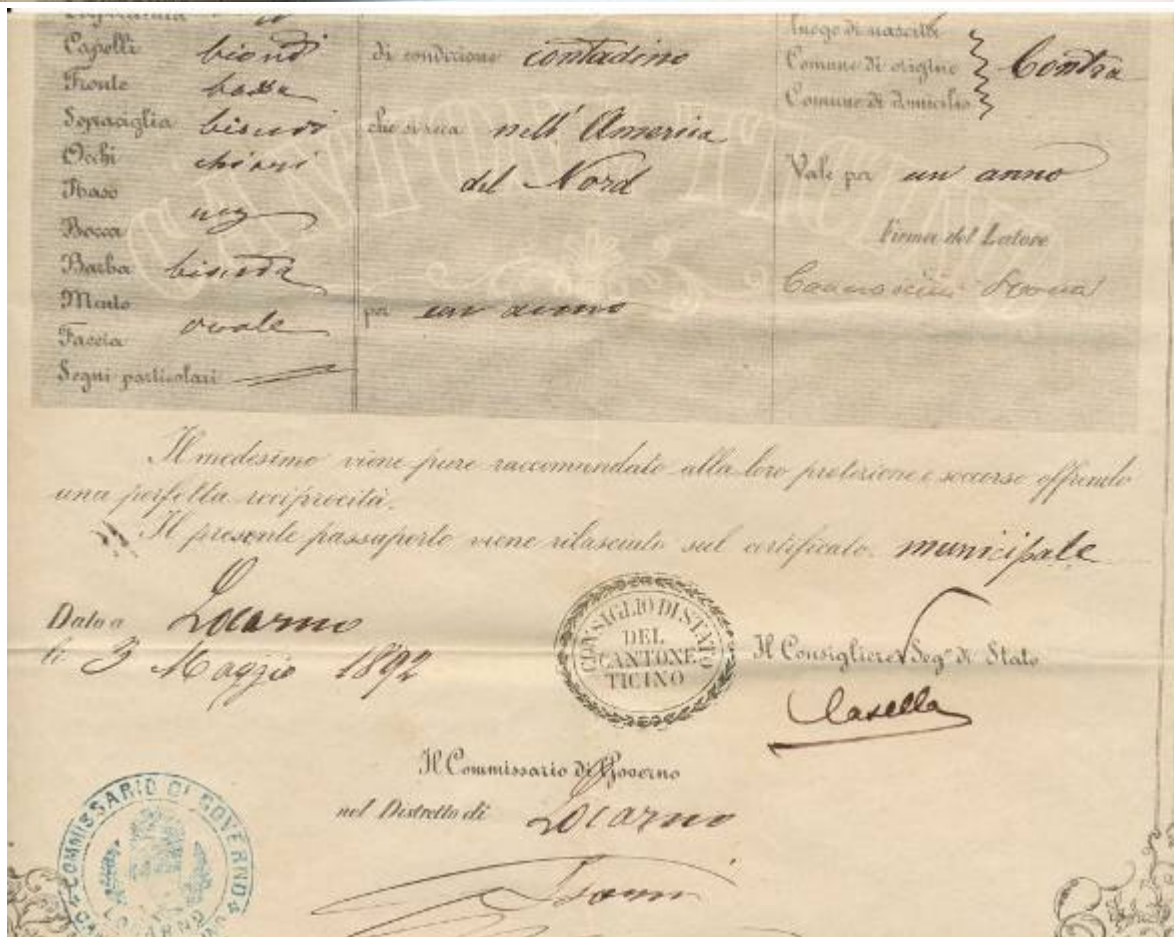 Capelli biondi
Fronte bassa
Sopraciglia biondi
Occhi chiari
Naso
Bocca reg
Barba bionda
Mento
Faccia ovale
Segni particolari
di condizione contadino
che si reca nell' America
del Nord
per un anno
luogo di nascita
Comune di origine
Comune di domicilio
Contra
Vale per un anno
Firma del Latore
CANTONE TICINO
Il medesimo viene pure raccomandato alla loro protezione e soccorso offrendo
una perfetta reciprocità.
Il presente passaporto viene rilasciato sul certificato municipale
Dato a Locarno
li 3 Maggio 1892
CONSIGLIO DI STATO
DEL
CANTONE
TICINO
Il Consigliere Segº di Stato
Casella
Il Commissario di Governo
nel Distretto di Locarno
COMMISSARIO DI GOVERNO
LOCARNO